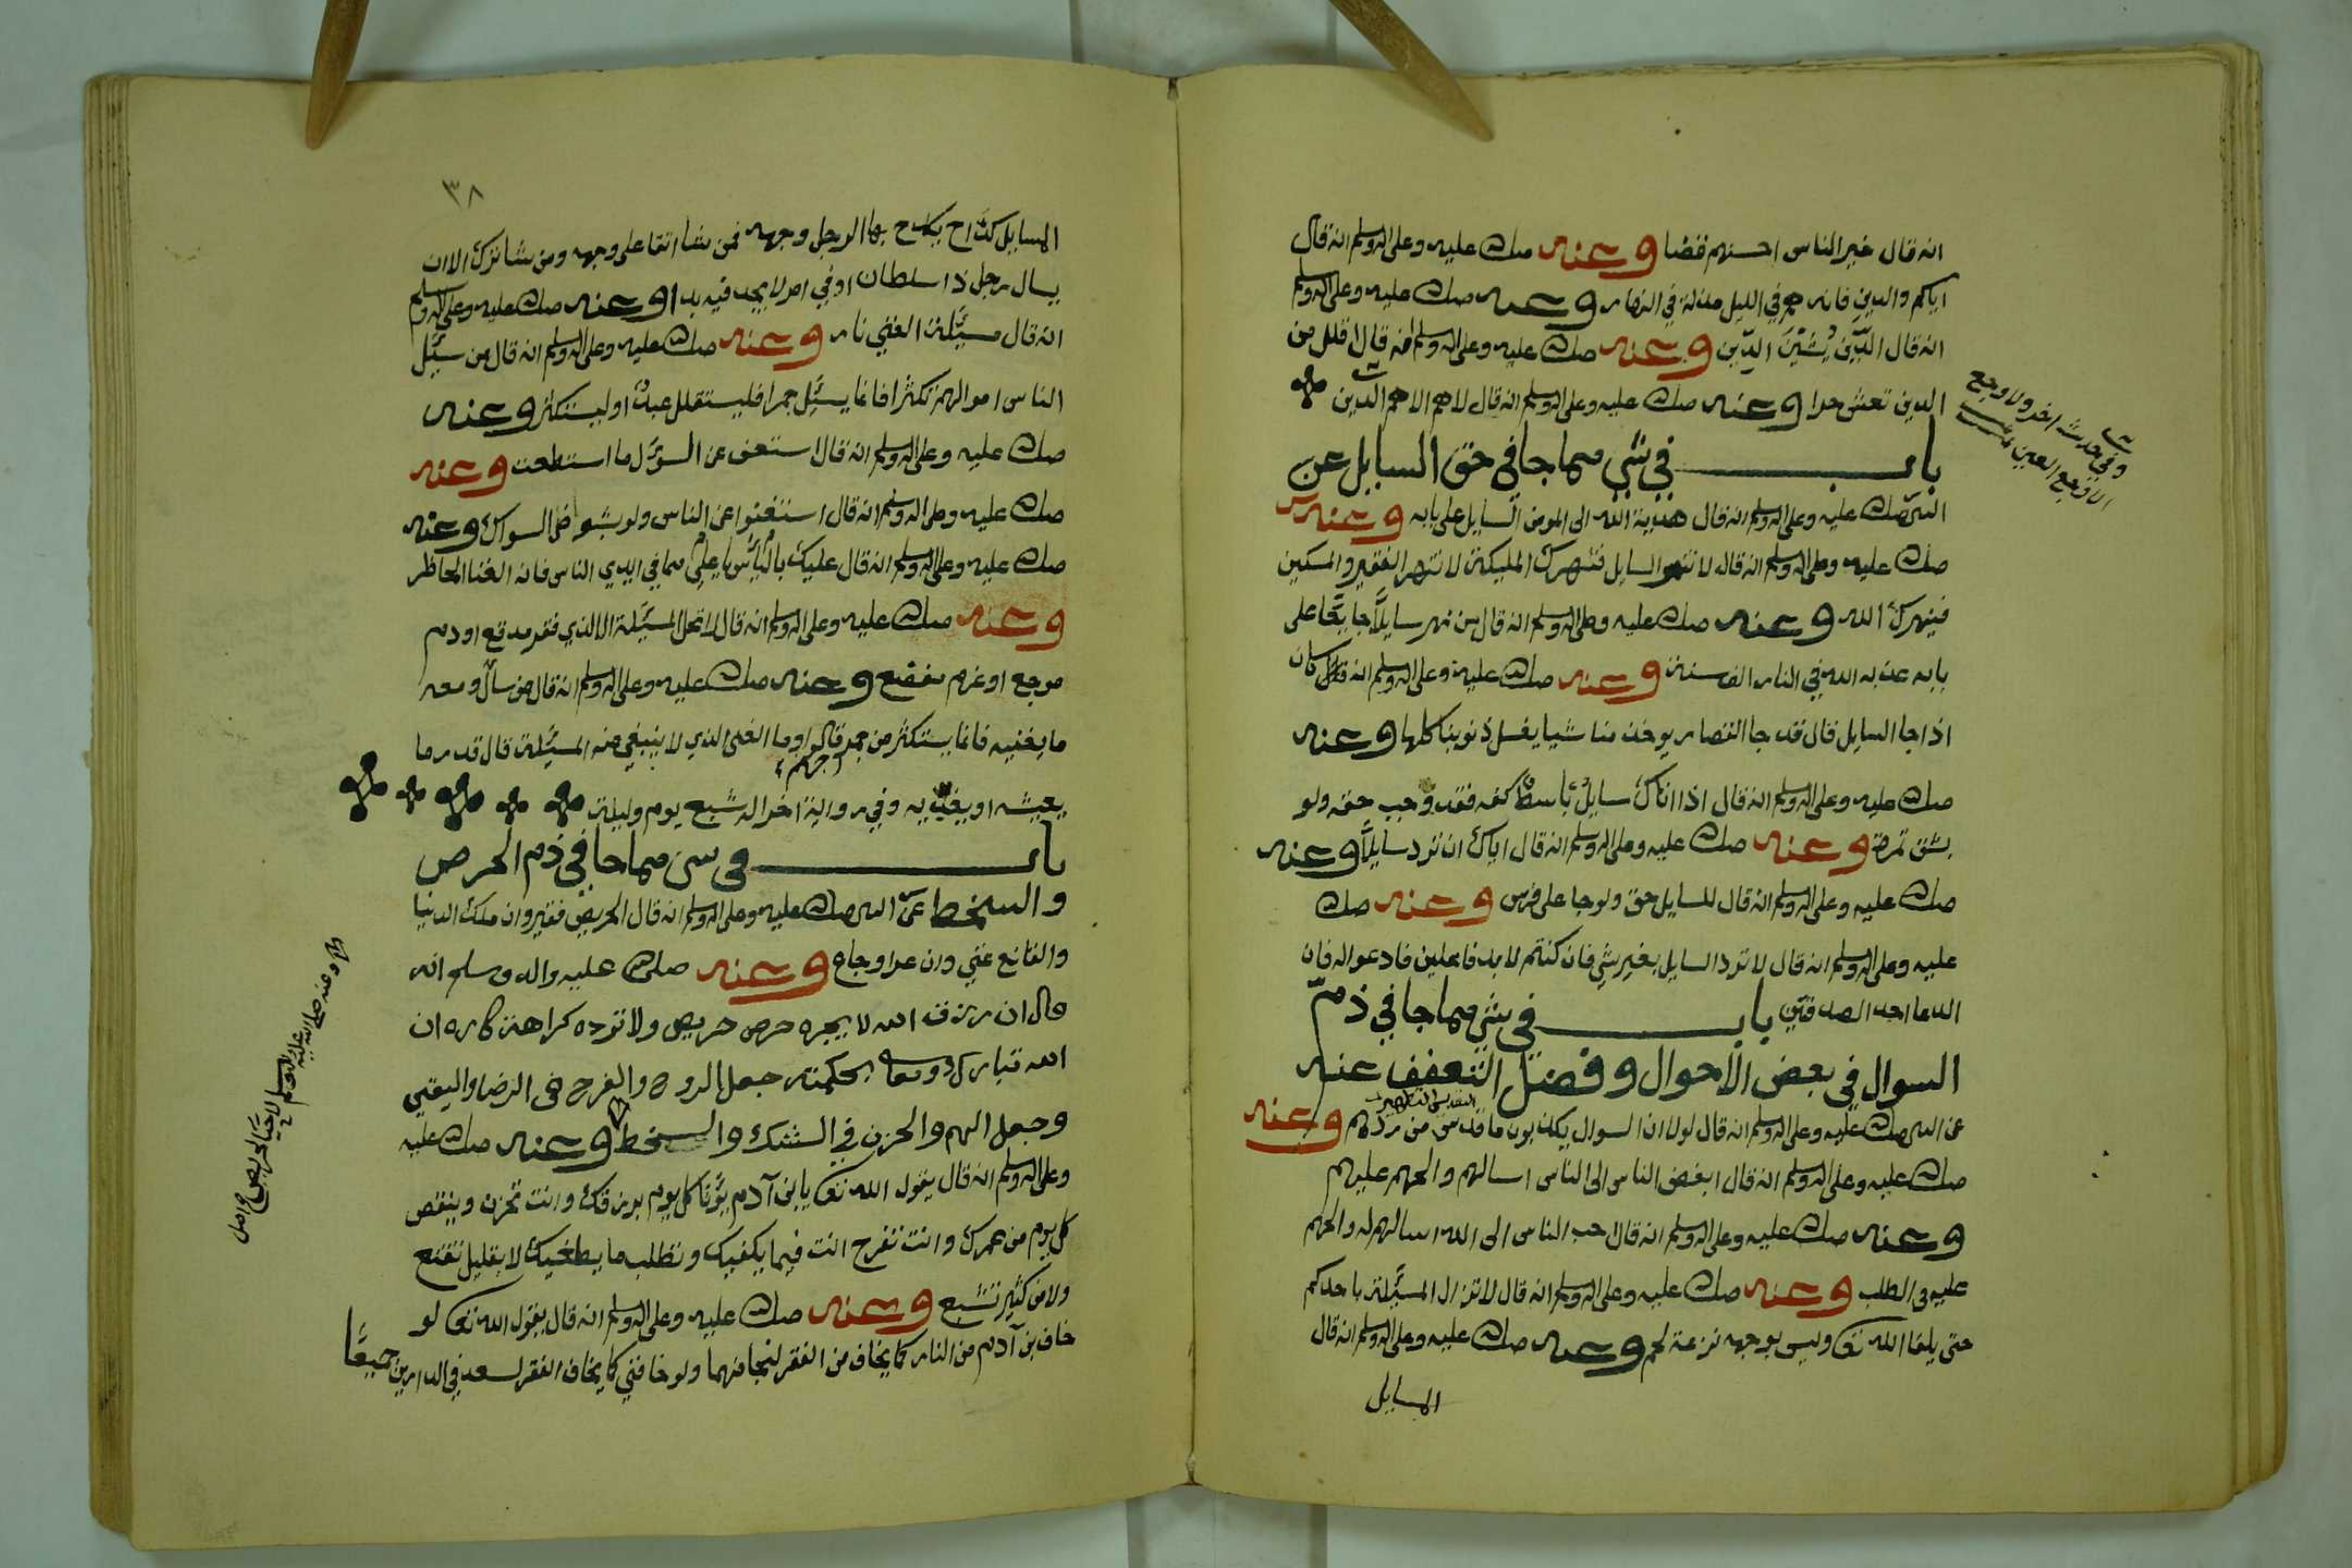 انه قال خير الناس احسنهم قضا وعنه صلى الله عليه وعلى اله وسلم انه قال
اياكم والدين فانه هم في الليل مذلة في النهار وعنه صلى الله عليه وعلى اله وسلم
انه قال الدَّين يُشين الدِّين وعنه صلى الله عليه وعلى اله وسلم انه قال اقلل من
الدين تعش حرا وعنه صلى الله عليه وعلى اله وسلم انه قال لا هم الا هم الدين
وفي حديث اخر ولا وجع
الا وجع العين
باب في شي مما جا في حق السايل عن
النبي صلى الله عليه وعلى اله وسلم انه قال هدية الله الى المومن السايل على بابه وعنه
صلى الله عليه وعلى اله وسلم انه قال لا تنهر السايل فتنهرك المليكة لا تنهر الفقير والمسكين
فينهرك الله وعنه صلى الله عليه وعلى اله وسلم انه قال من نهر سايلًا جا يتجا على
بابه عذبه الله في النار الف سنة وعنه صلى الله عليه وعلى اله وسلم انه كان
اذا جا السايل قال قد جا القصار يوخذ منا شيا يغسل ذنوبنا كلها وعنه
صلى الله عليه وعلى اله وسلم انه قال اذا اتاك سايلٌ باسطٌ كفه فقد وجب حقه ولو
بشق تمرة وعنه صلى الله عليه وعلى اله وسلم انه قال اياك ان ترد سايلًا وعنه
صلى الله عليه وعلى اله وسلم انه قال للسايل حق ولو جا على فرس وعنه صلى الله
عليه وعلى اله وسلم انه قال لا ترد السايل بغير شي فان كنتم لا بد فاعلين فادعوا له فان
الدعا احد الصدقتين باب في شي مما جا في ذم
السوال في بعض الاحوال وفضل التعفف عنه
عن النبي صلى الله عليه وعلى اله وسلم انه قال لولا ان السوال يكذبون ما قدس من ردهم وعنه
صلى الله عليه وعلى اله وسلم انه قال ابغض الناس الى الناس اسالهم والحهم عليهم
وعنه صلى الله عليه وعلى اله وسلم انه قال احب الناس الى الله اسالهم له والحهم
عليه في الطلب وعنه صلى الله عليه وعلى اله وسلم انه قال لا تزال المسئلة باحدكم
حتى يلقا الله تعالى وليس بوجهه نزعة لحم وعنه صلى الله عليه وعلى اله وسلم انه قال
المسايل
٣٨
المسايل كدّاح يكدح بها الرجل وجهه فمن شا اتقا على وجهه ومن شا ترك الا ان
يسال رجل ذا سلطان او في امر لا يجد فيه بدا وعنه صلى الله عليه وعلى اله وسلم
انه قال مسئلة الغني نار وعنه صلى الله عليه وعلى اله وسلم انه قال من سئل
الناس اموالهم تكثرا فانما يسئل جمرا فليستقلل عبدٌ او ليستكثر وعنه
صلى الله عليه وعلى اله وسلم انه قال استعف عن السوال ما استطعت وعنه
صلى الله عليه وعلى اله وسلم انه قال استغنوا عن الناس ولو بشوص السواك وعنه
صلى الله عليه وعلى اله وسلم انه قال عليك بالياس يا علي مما في ايدي الناس فانه الغنا الحاظر
وعنه صلى الله عليه وعلى اله وسلم انه قال لا تحل المسئلة الا لذي فقر مدقع او دم
موجع او غرم مفضع وعنه صلى الله عليه وعلى اله وسلم انه قال من سال ومعه
ما يغنيه فانما يستكثر من جمر قالوا وما الغنى الذي لا ينبغي منه المسئلة قال قدر ما
جهنم
يعيشه او يغديه وفي رواية اخر اله شبع يوم وليلة
باب في شي مما جا في ذم الحرص
والسخط عن النبي صلى الله عليه وعلى اله وسلم انه قال الحريص فقير وان ملك الدنيا
والقانع غني وان عرا وجاع وعنه صلى الله عليه واله وسلم انه
قال ان رزق الله لا يجره حرص حريص ولا توده كراهة كاره ان
الله تبارك وتعالى بحكمته جعل الروح والفرح في الرضا واليقين
وجعل الهم والحزن في الشك والسخط وعنه صلى الله عليه
وعلى اله وسلم انه قال يقول الله تعالى يابن آدم يؤتا كل يوم برزقك وانت تحزن وينقص
كل يوم من عمرك وانت تفرح انت فيما يكفيك وتطلب ما يطغيك لا بقليل تقنع
ولا من كثير تشبع وعنه صلى الله عليه وعلى اله وسلم انه قال يقول الله تعالى لو
خاف بن آدم من النار كما يخاف من الفقر لنجا منهما ولو خافني كما يخاف الفقر لسعد في الدارين جميعًا